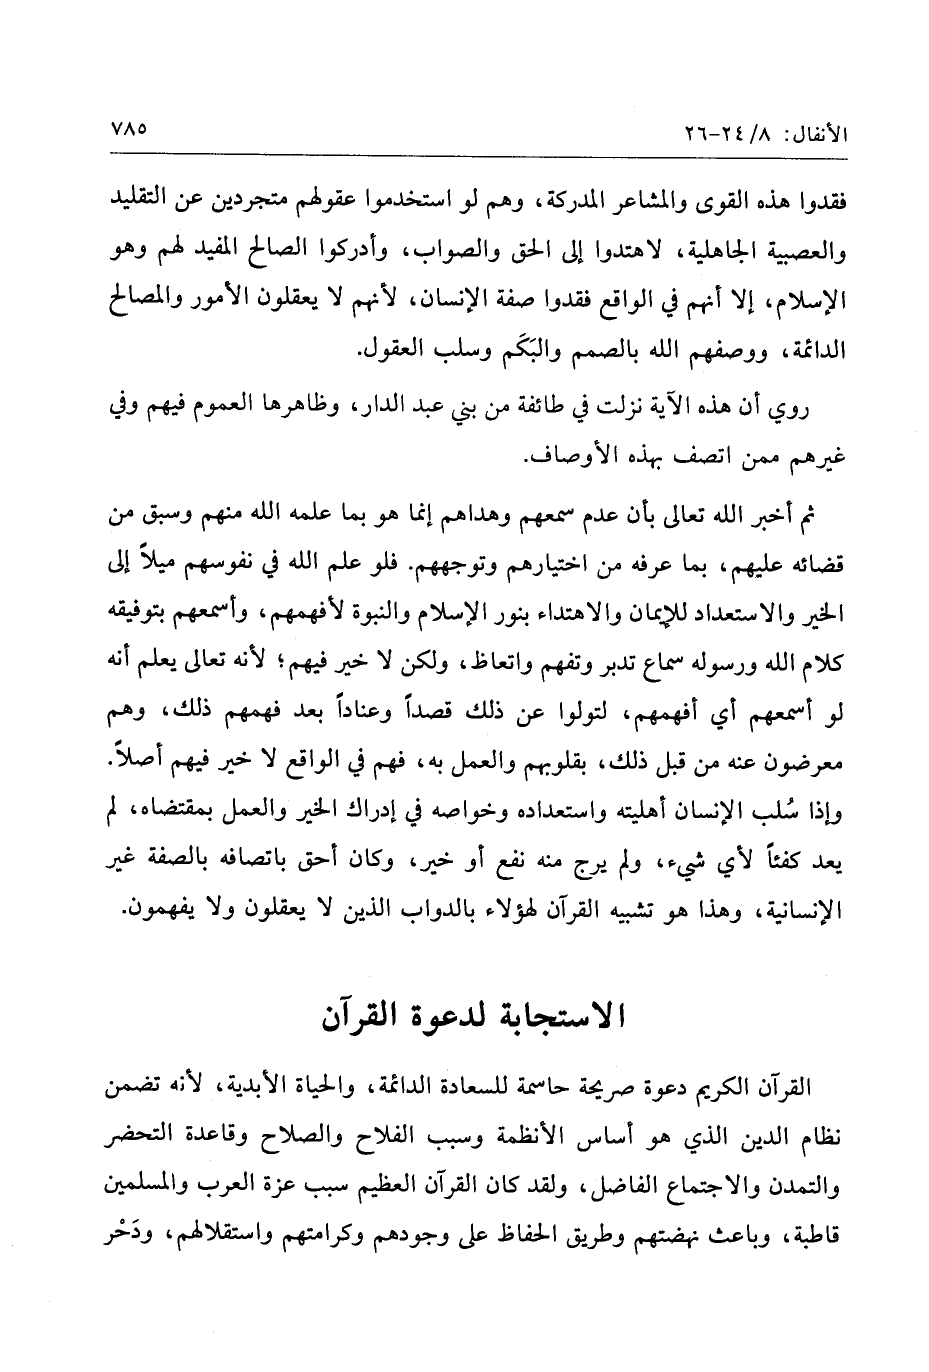 الأنفال: ٨/ ٢٤-٢٦ ٧٨٥
فقدوا هذه القوى والمشاعر المدركة، وهم لو استخدموا عقولهم متجردين عن التقليد
والعصبية الجاهلية، لاهتدوا إلى الحق والصواب، وأدركوا الصالح المفيد لهم وهو
الإسلام، إلا أنهم في الواقع فقدوا صفة الإنسان، لأنهم لا يعقلون الأمور والمصالح
الدائمة، ووصفهم الله بالصمم والبَكَم وسلب العقول.
روي أن هذه الآية نزلت في طائفة من بني عبد الدار، وظاهرها العموم فيهم وفي
غيرهم ممن اتصف بهذه الأوصاف.
ثم أخبر الله تعالى بأن عدم سمعهم وهداهم إنما هو بما علمه الله منهم وسبق من
قضائه عليهم، بما عرفه من اختيارهم وتوجههم. فلو علم الله في نفوسهم ميلاً إلى
الخير والاستعداد للإيمان والاهتداء بنور الإسلام والنبوة لأفهمهم، وأسمعهم بتوفيقه
كلام الله ورسوله سماع تدبر وتفهم واتعاظ، ولكن لا خير فيهم؛ لأنه تعالى يعلم أنه
لو أسمعهم أي أفهمهم، لتولوا عن ذلك قصداً وعناداً بعد فهمهم ذلك، وهم
معرضون عنه من قبل ذلك، بقلوبهم والعمل به، فهم في الواقع لا خير فيهم أصلاً.
وإذا سُلب الإنسان أهليته واستعداده وخواصه في إدراك الخير والعمل بمقتضاه، لم
يعد كفئاً لأي شيء، ولم يرج منه نفع أو خير، وكان أحق باتصافه بالصفة غير
الإنسانية، وهذا هو تشبيه القرآن لهؤلاء بالدواب الذين لا يعقلون ولا يفهمون.
الاستجابة لدعوة القرآن
القرآن الكريم دعوة صريحة حاسمة للسعادة الدائمة، والحياة الأبدية، لأنه تضمن
نظام الدين الذي هو أساس الأنظمة وسبب الفلاح والصلاح وقاعدة التحضر
والتمدن والاجتماع الفاضل، ولقد كان القرآن العظيم سبب عزة العرب والمسلمين
قاطبة، وباعث نهضتهم وطريق الحفاظ على وجودهم وكرامتهم واستقلالهم، ودَحْر